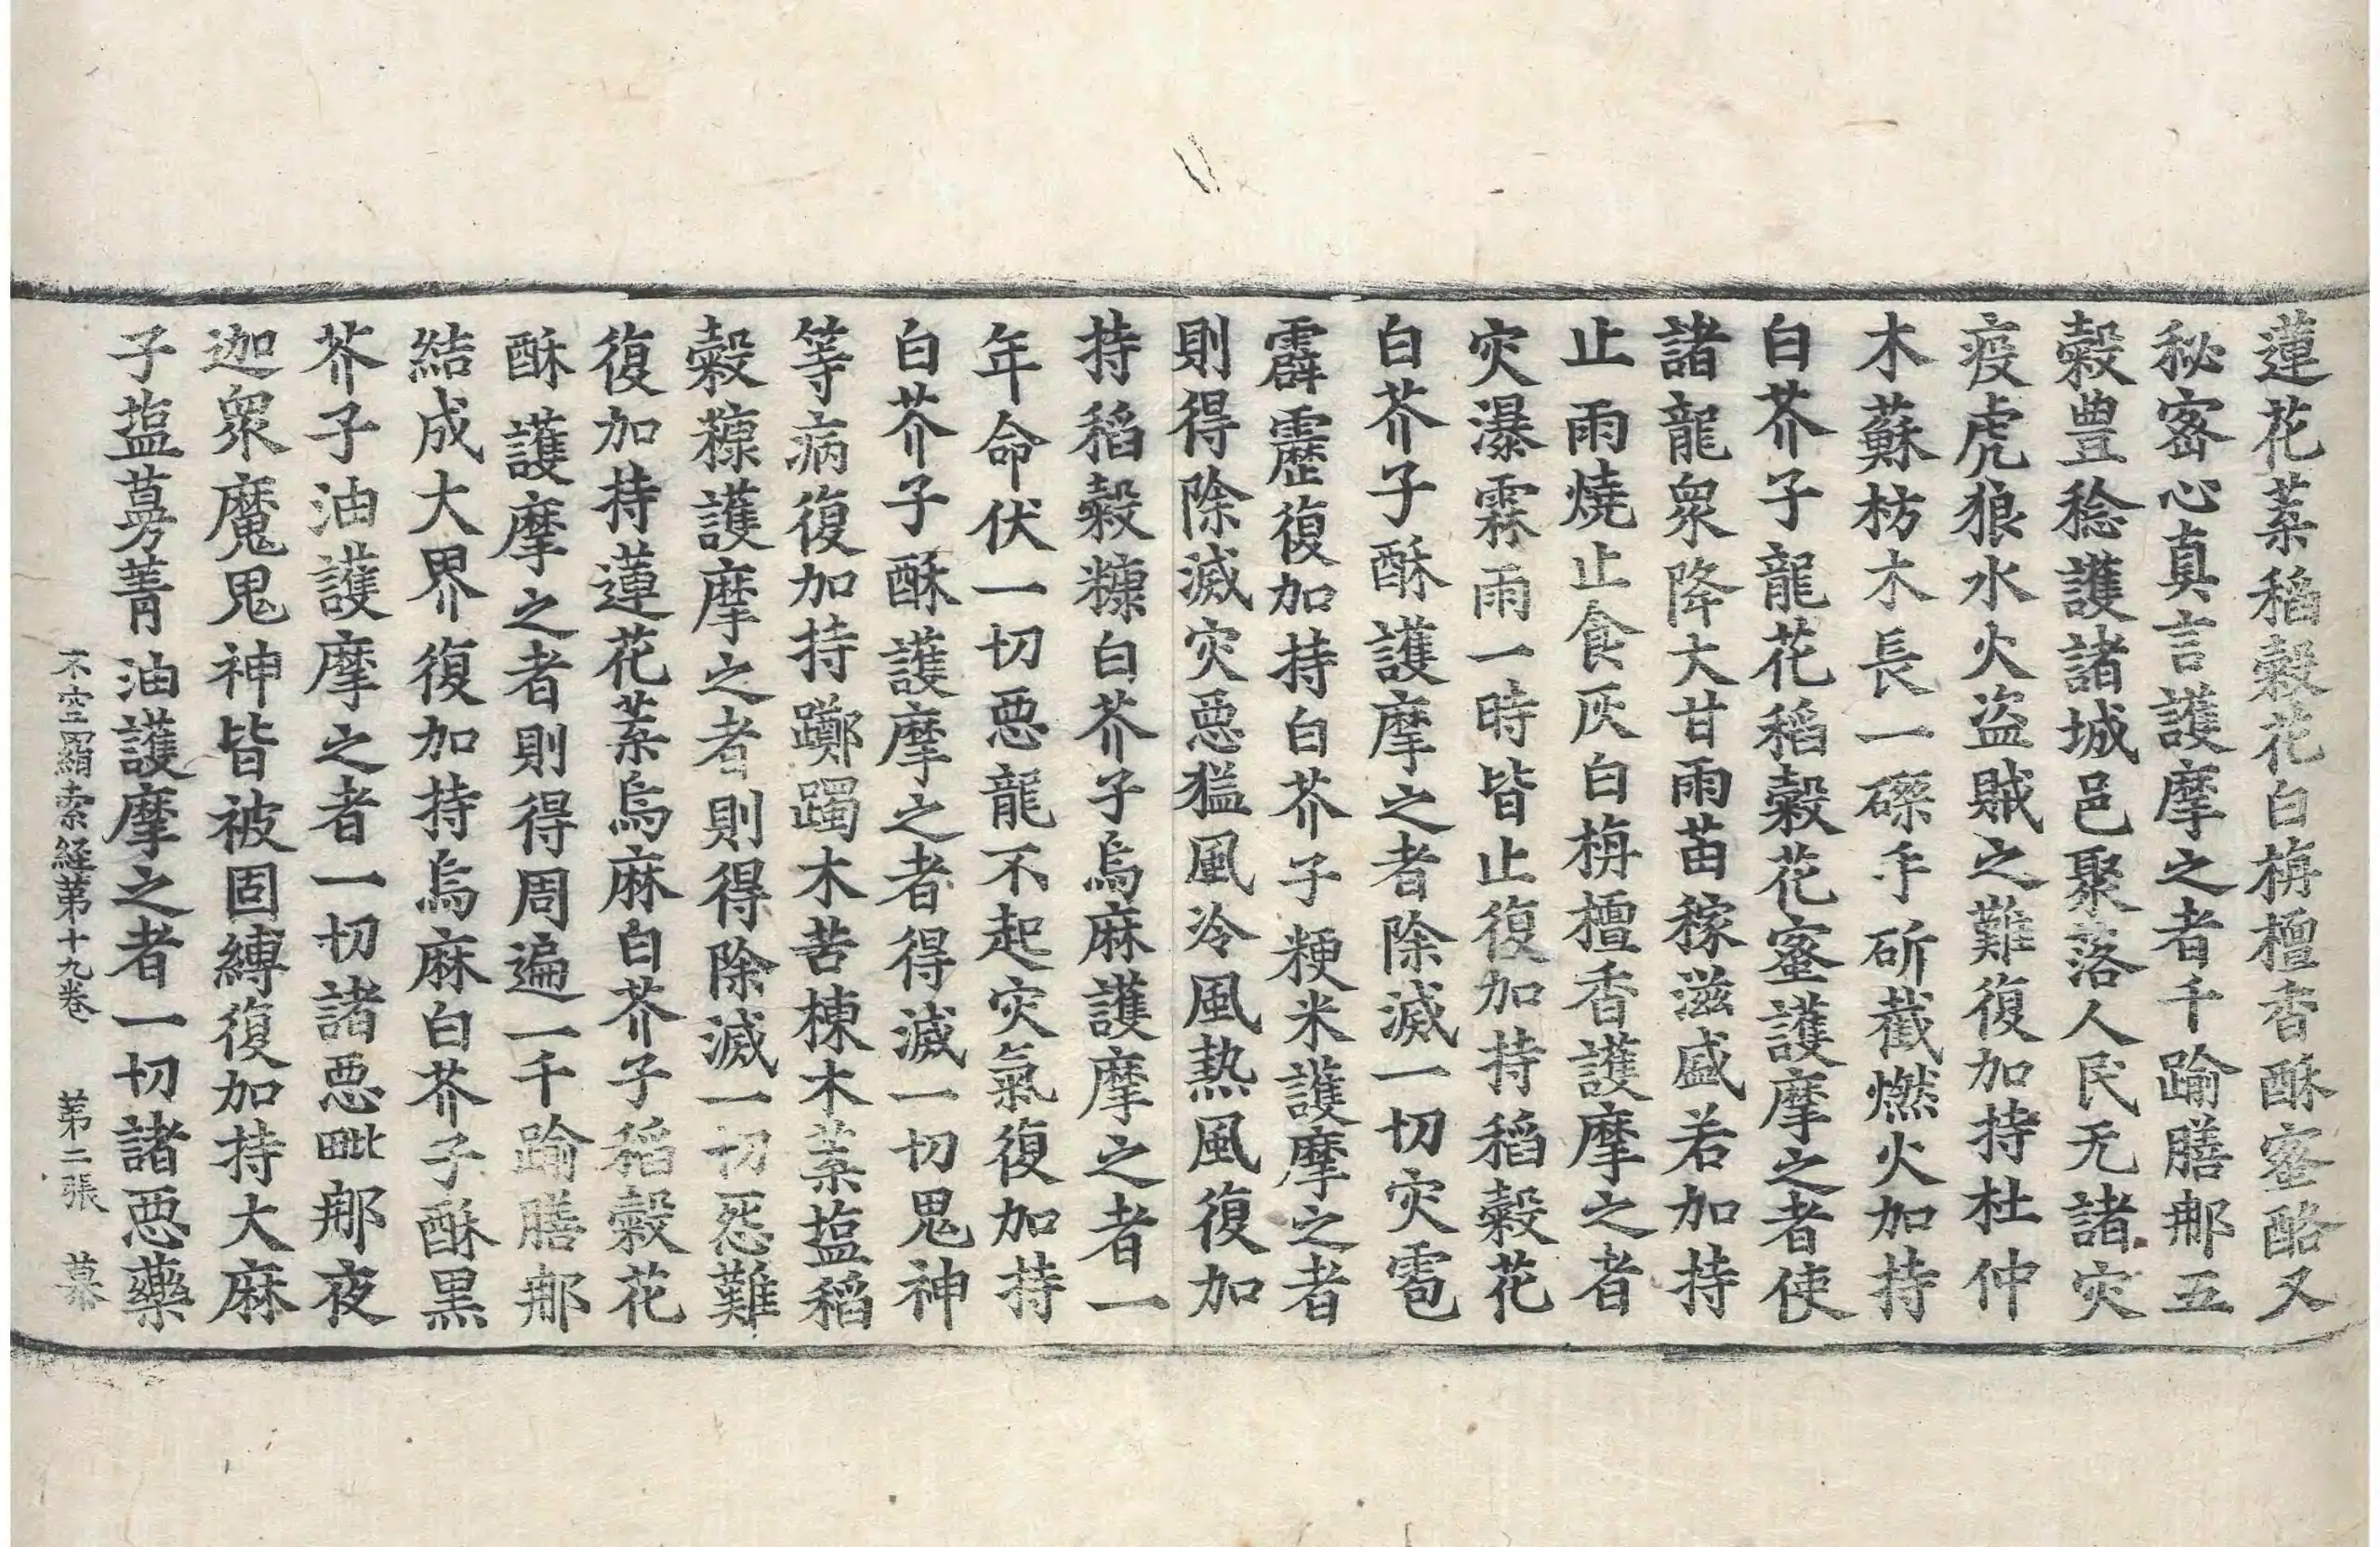 蓮花蘂稻穀花白栴檀香酥蜜酪又
秘密心真言護摩之者千踰膳那五
穀豊稔護諸城邑聚落人民无諸灾
疫虎狼水火盗賊之難復加持杜仲
木蘇枋木木長一磔手斫截燃火加持
白芥子龍花稻穀花蜜護摩之者使
諸龍衆降大甘雨苗稼滋盛若加持
止雨燒止食灰白栴檀香護摩之者
灾瀑霖雨一時皆止復加持稻穀花
白芥子酥護摩之者除滅一切灾雹
霹靂復加持白芥子粳米護摩之者
則得除滅灾惡猛風冷風熱風復加
持稻穀糠白芥子烏麻護摩之者一
年命伏一切惡龍不起灾氣復加持
白芥子酥護摩之者得滅一切鬼神
等病復加持躑躅木苦楝木蘂塩稻
穀糠護摩之者則得除滅一切怨難
復加持蓮花蘂烏麻白芥子稻穀花
酥護摩之者則得周遍一千踰膳那
結成大界復加持烏麻白芥子酥黒
芥子油護摩之者一切諸惡毗那夜
迦衆魔鬼神皆被固縛復加持大麻
子塩蔓菁油護摩之者一切諸惡藥
不空羂索経第十九卷 第二張 慕